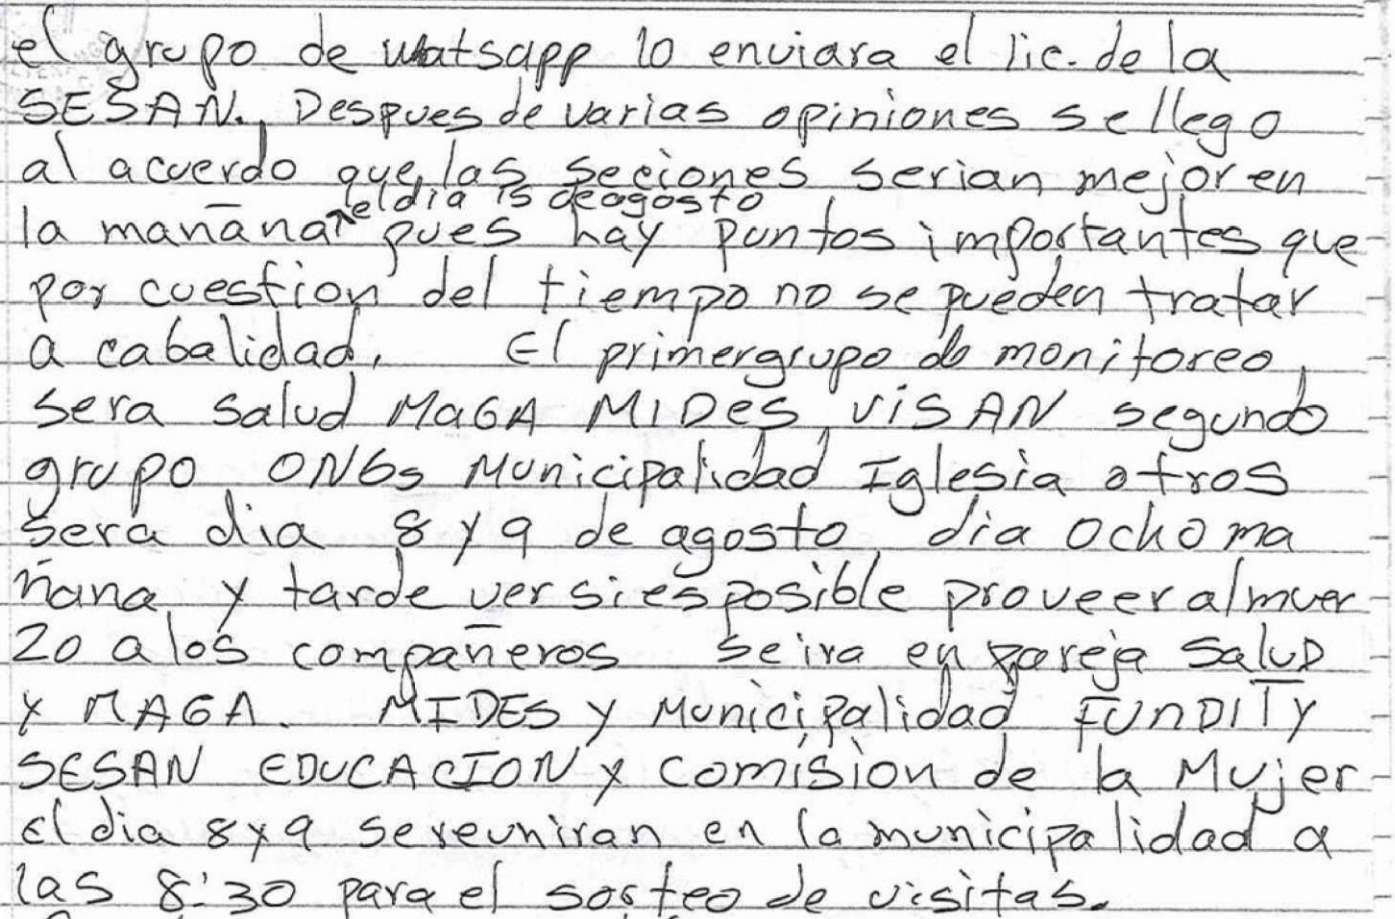 el grupo de watsapp lo enviara el lic. de la
SESAN., Despues de varias opiniones se llego
al acuerdo que, las seciones serian mejor en
el dia 15 de agosto
la mañana pues hay puntos importantes que
por cuestion del tiempo no se pueden tratar
a cabalidad. El primer grupo de monitoreo,
sera salud MAGA MIDes, VISAN segundo
grupo ONGs Municipalidad Iglesia otros
sera dia 8 y 9 de agosto, dia ocho ma
ñana, y tarde ver si es posible proveer almuer
zo a los compañeros se ira en pareja Salud
y MAGA. MIDES y Municipalidad FUNDIT y
SESAN EDUCACION y comision de la Mujer
el dia 8 y 9 se reuniran en la municipalidad a
las 8:30 para el sorteo de visitas.